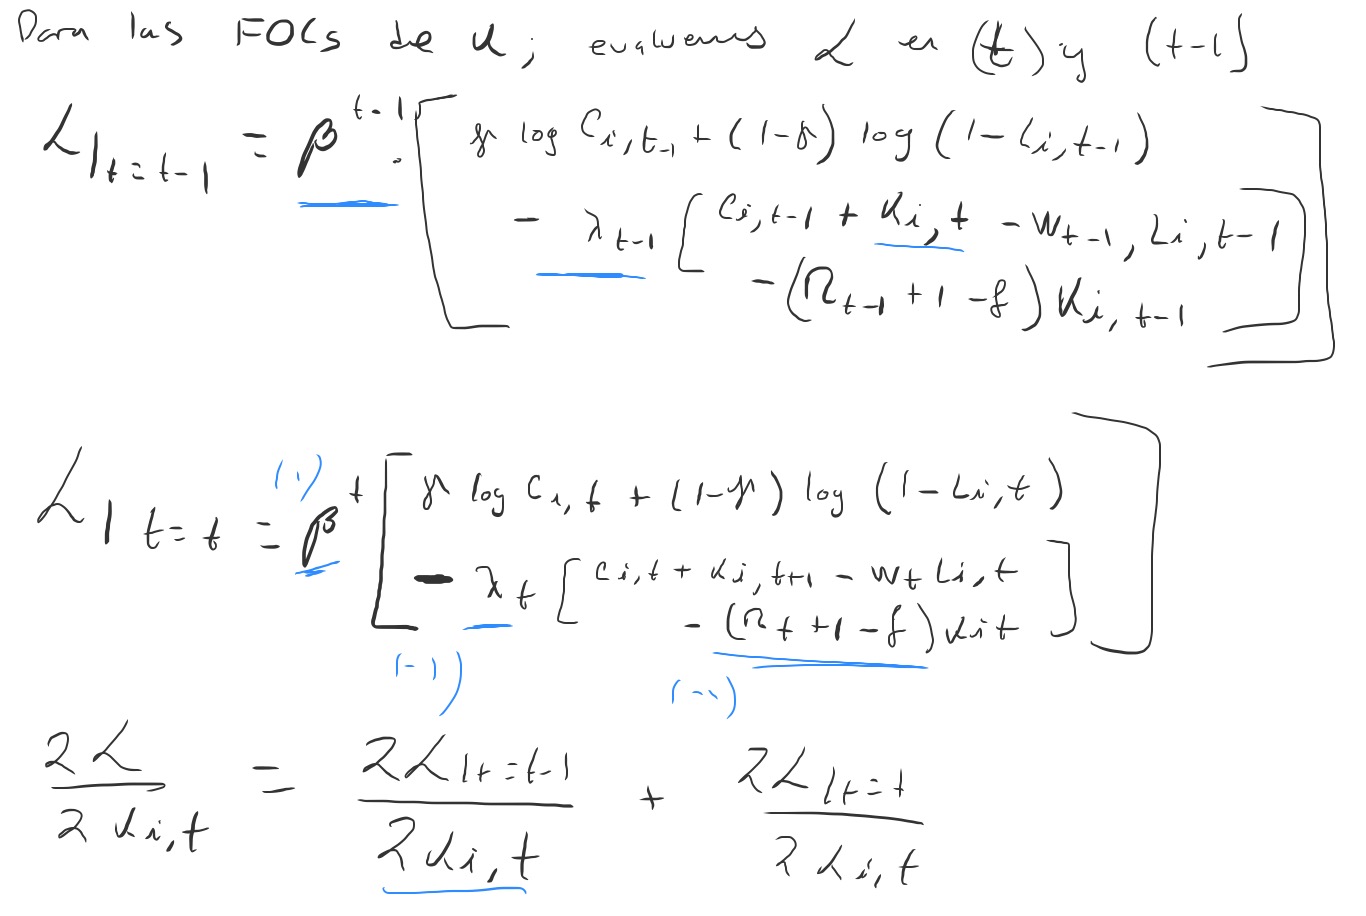 Para las FOCs de K; evaluemos L en (t) y (t-1)
L|t=t-1 = β^{t-1} · [ γ log C_{i,t-1} + (1-γ) log (1-L_{i,t-1})
- λ_{t-1} [ C_{i,t-1} + K_{i,t} - W_{t-1}, L_{i,t-1}
- (R_{t-1} + 1 - δ) K_{i,t-1} ] ]
(1)
L|t=t = β^t [ γ log C_{i,t} + (1-γ) log (1-L_{i,t})
- λ_t [ C_{i,t} + K_{i,t+1} - W_t L_{i,t}
- (R_t + 1 - δ) K_{it} ] ]
(-1) (-1)
∂L/∂K_{i,t} = ∂L|t=t-1/∂K_{i,t} + ∂L|t=t/∂K_{i,t}